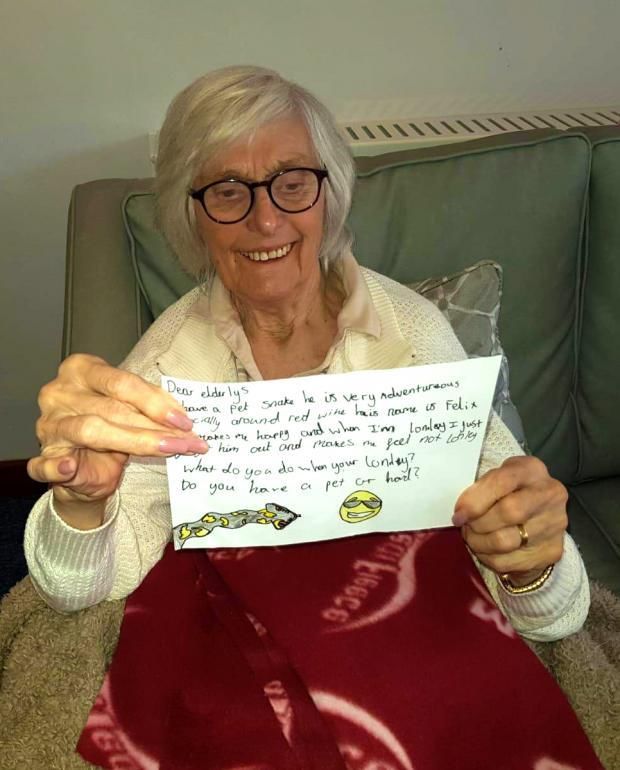 Dear elderlys
have a pet snake he is very Adventureous
cially around red wine he is name is Felix
makes me happy and when I'm lonley I just
him out and makes me feel not lonley
What do you do when your lonley?
Do you have a pet or had?
Fleece